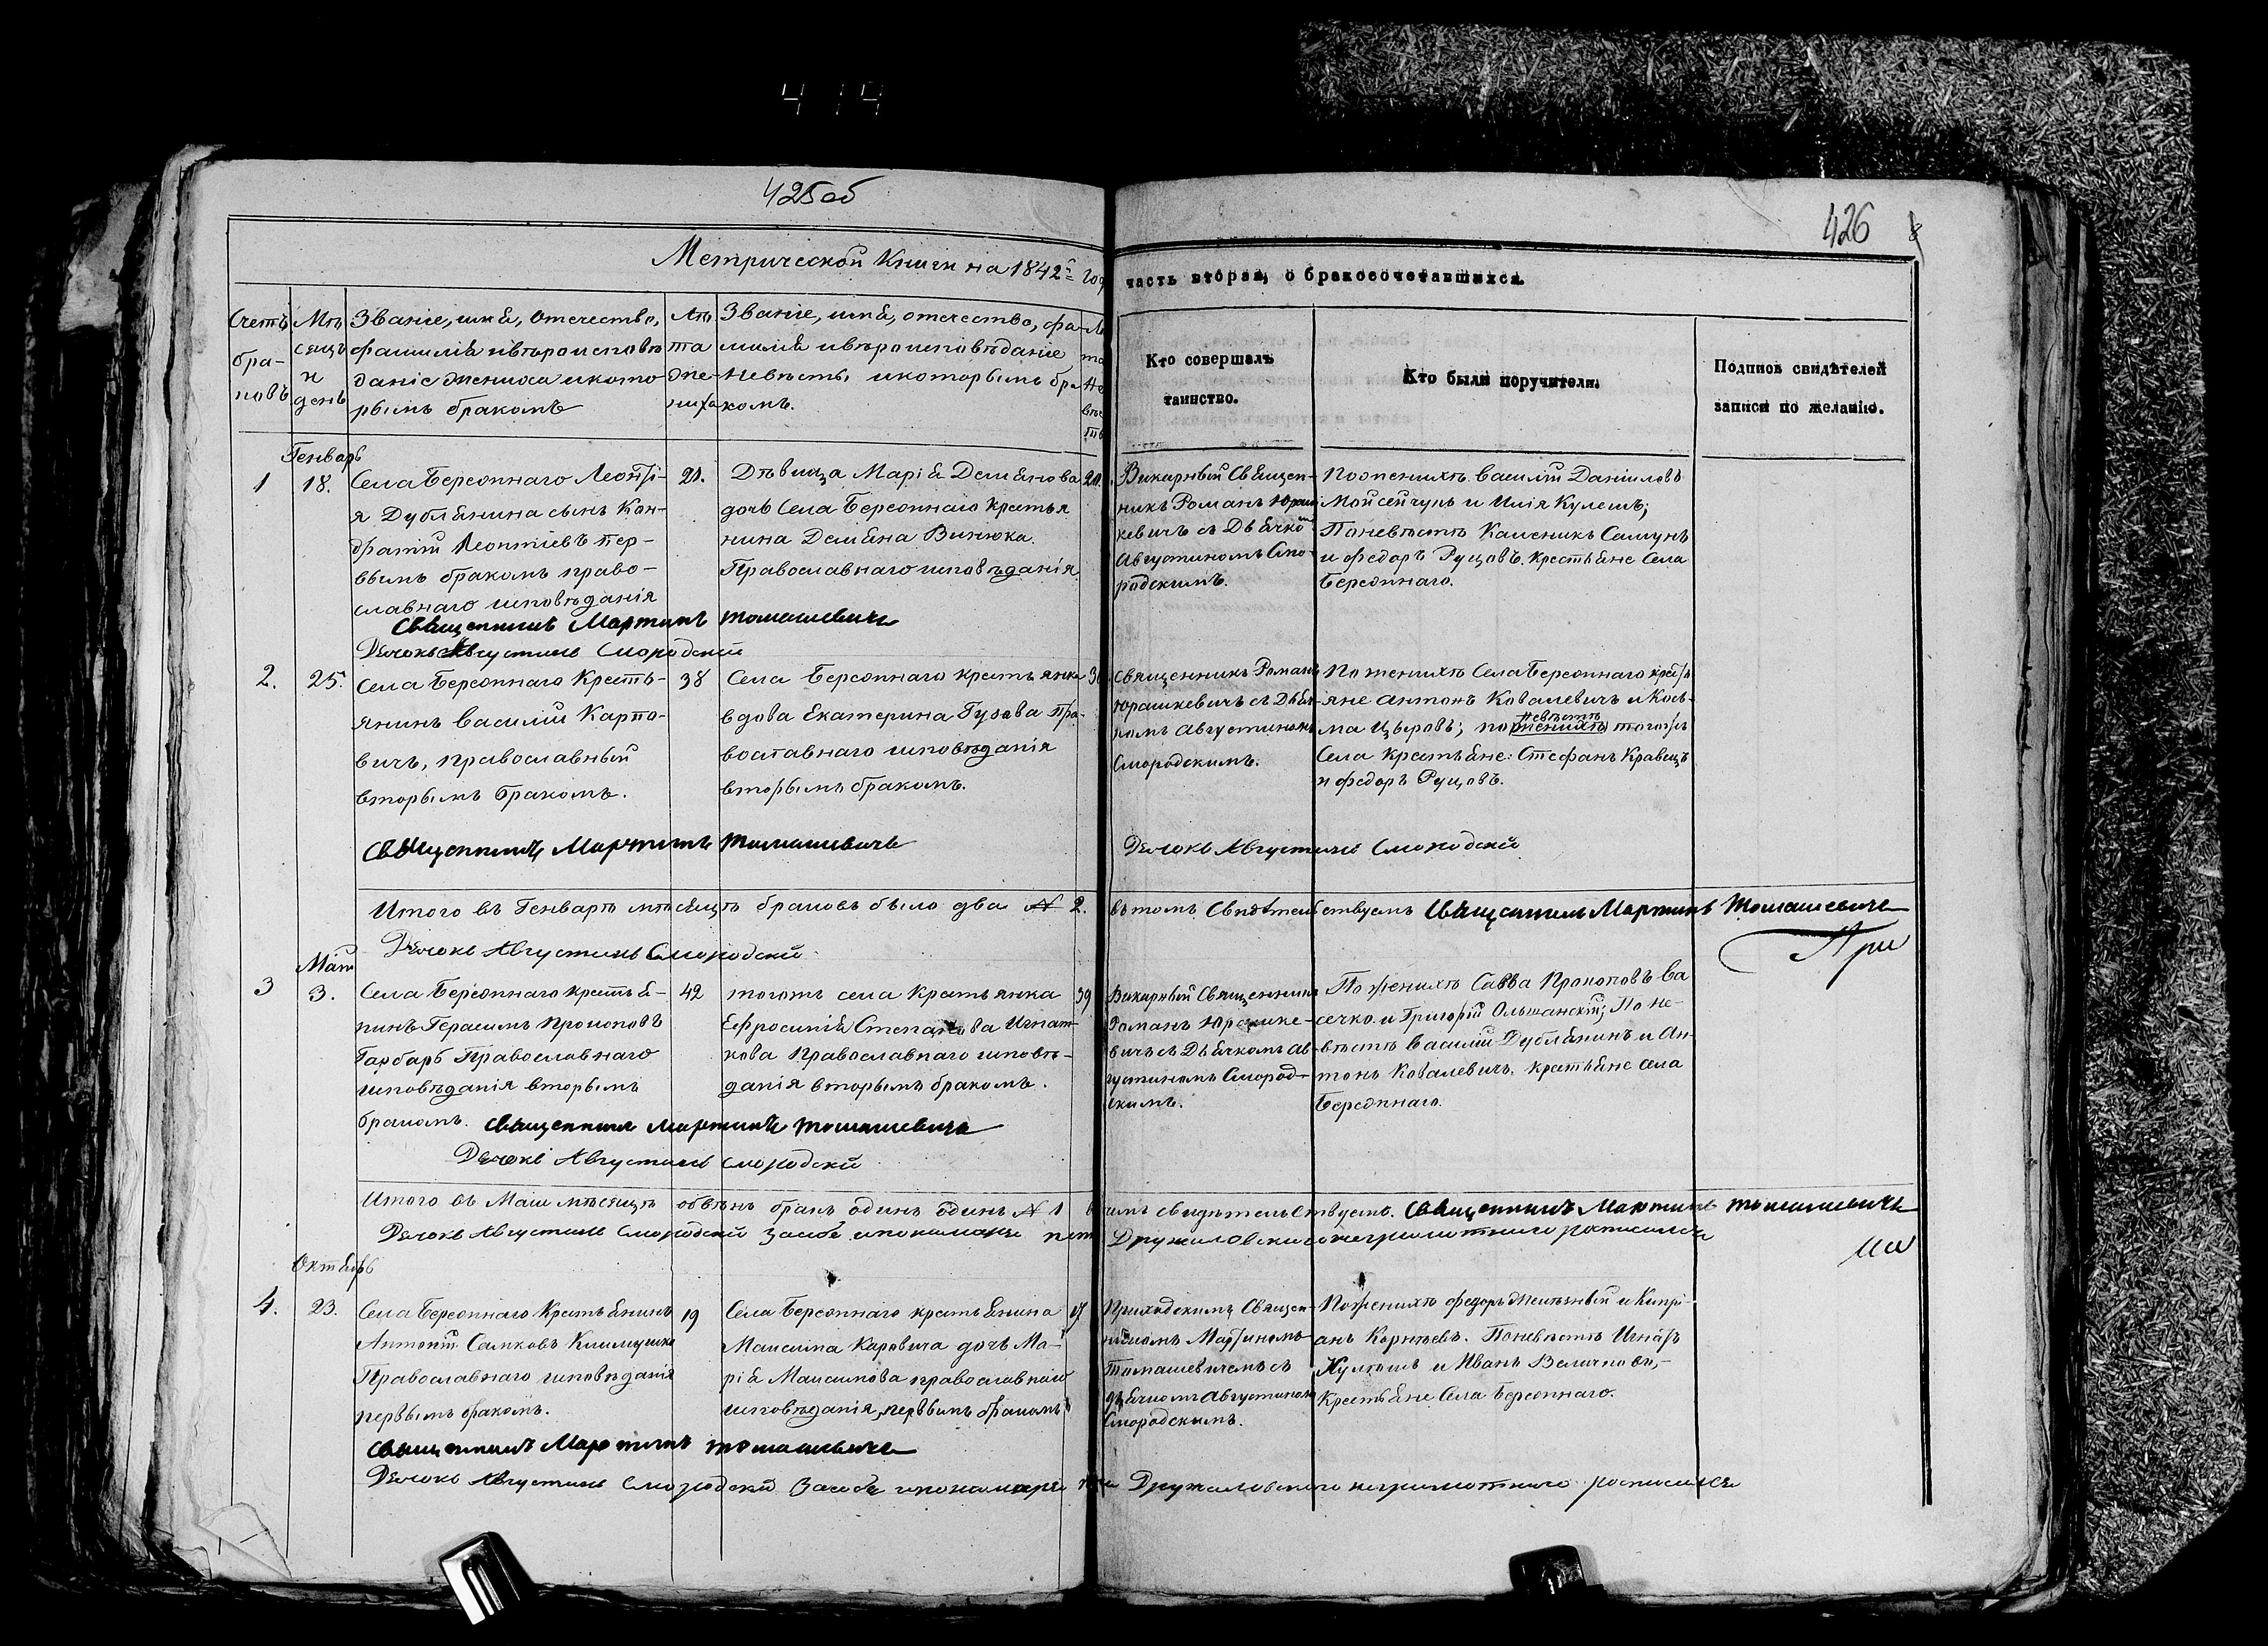 4 1 9
425об
426
Метрической Книги на 1842й год
часть вторая, о бракосочетавшихся.
Счетъ браковъ
Мѣсяцъ и день
Званіе, имя, Отечество,
фамилія и вѣроисповѣ
даніе жениха и кото
рымъ бракомъ
Лѣта жениха
Званіе, имя, отечество, фа-
милія и вѣроисповѣданіе
невѣсты и которымъ бра
комъ.
Кто совершалъ
таинство.
Кто были поручители.
Подписи свидѣтелей
записи по желанію.
Генварь
1
18.
Села Бережнаго Леонтi-
я Дублянина сынъ Кон-
дратій Леонтіевъ пер-
вымъ бракомъ право-
славнаго исповѣданія
21.
Дѣвица Марія Демянова
дочь Села Бережнаго крестья
нина Демяна Винюка.
Православнаго исповѣданія
Викарный Священ-
никъ Романъ Юраш
кевичъ съ Дьячко
Августиномъ Смо-
родскимъ.
По женихѣ Василій Даніиловъ
Мойсейчукъ и Илія Кулешъ;
По невѣстѣ Каленикъ Самунъ
и федоръ Руцовъ. крестьяне Села
Бережнаго.
Священникъ Мартинъ Томашевичъ
Дьячокъ Августинъ Смородскій
2.
25.
Села Бережнаго Кресть-
янинъ Василій Карпо-
вичъ, православный
вторымъ бракомъ.
38
Села Бережнаго крестьянка
вдова Екатерина Гузава Пра-
вославнаго исповѣданія
вторымъ бракомъ.
Священникъ Романъ
Юрашкевичъ съ Дьяч
комъ Августиномъ
Смородскимъ.
По женихѣ Села Бережнаго крестья
яне Антонъ Ковалевичъ и Кось-
ма Цыровъ; по невѣстѣ женихѣ тогожъ
Села крестьяне: Стефанъ Кравецъ
и федоръ Руцовъ.
Священникъ Мартинъ Томашевичъ
Дьячокъ Августинъ Смородскій
Итого въ Генварѣ мѣсяцѣ браковъ было два № 2. въ томъ Свидѣтельствуемъ Священникъ Мартинъ Томашевичъ
Дьячокъ Августинъ Смородскій
При
Маій
3
3.
Села Бережнаго крестья-
нинъ Герасимъ Прокоповъ
Гарбаръ Православнаго
исповѣданія вторымъ
бракомъ.
42
тогожъ села Крестьянка
Ефросинія Степанова Игнат-
кова Православнаго исповѣ-
данія вторымъ бракомъ.
39
Викарный Священникъ
Романъ Юрашке-
вичъ съ Дьячкомъ Ав-
густиномъ Смород-
скимъ.
По женихѣ Савва Прокоповъ Ва
сечко и Григорій Ольшанскій; По не-
вѣстѣ Василій Дублянинъ и Ан-
тонъ Ковалевичъ. крестьяне села
Бережнаго.
Священникъ Мартинъ Томашевичъ
Дьячокъ Августинъ Смородскій
Итого въ Маіи мѣсяцѣ бракъ одинъ одинъ № 1 свидѣтельствуемъ. Священникъ Мартинъ Томашевичъ
Дьячокъ Августинъ Смородскій За себе и пономаря Дружиловскаго неграмотнаго росписался
Октябрь
4.
23.
Села Бережнаго Крестьянинъ
Антоній Самковъ Климушко
Православнаго исповѣданія
первымъ бракомъ.
19
Села Бережнаго крестьянина
Максима Каровича дочь Ма-
рія Максимова православнаго
исповѣданія, первымъ бракомъ
17
Приходскимъ Священ-
никомъ Мартиномъ
Томашевичемъ съ
дьячкомъ Августиномъ
Смородскимъ.
По женихѣ федоръ и Кипрі-
анъ Корнѣевъ. По невѣстѣ Игнатъ
Кулешъ и Иванъ Величковъ,-
Крестьяне Села Бережнаго.
Священникъ Мартинъ Томашевичъ
Дьячокъ Августинъ Смородскій За себе и пономаря Дружиловскаго неграмотнаго росписался